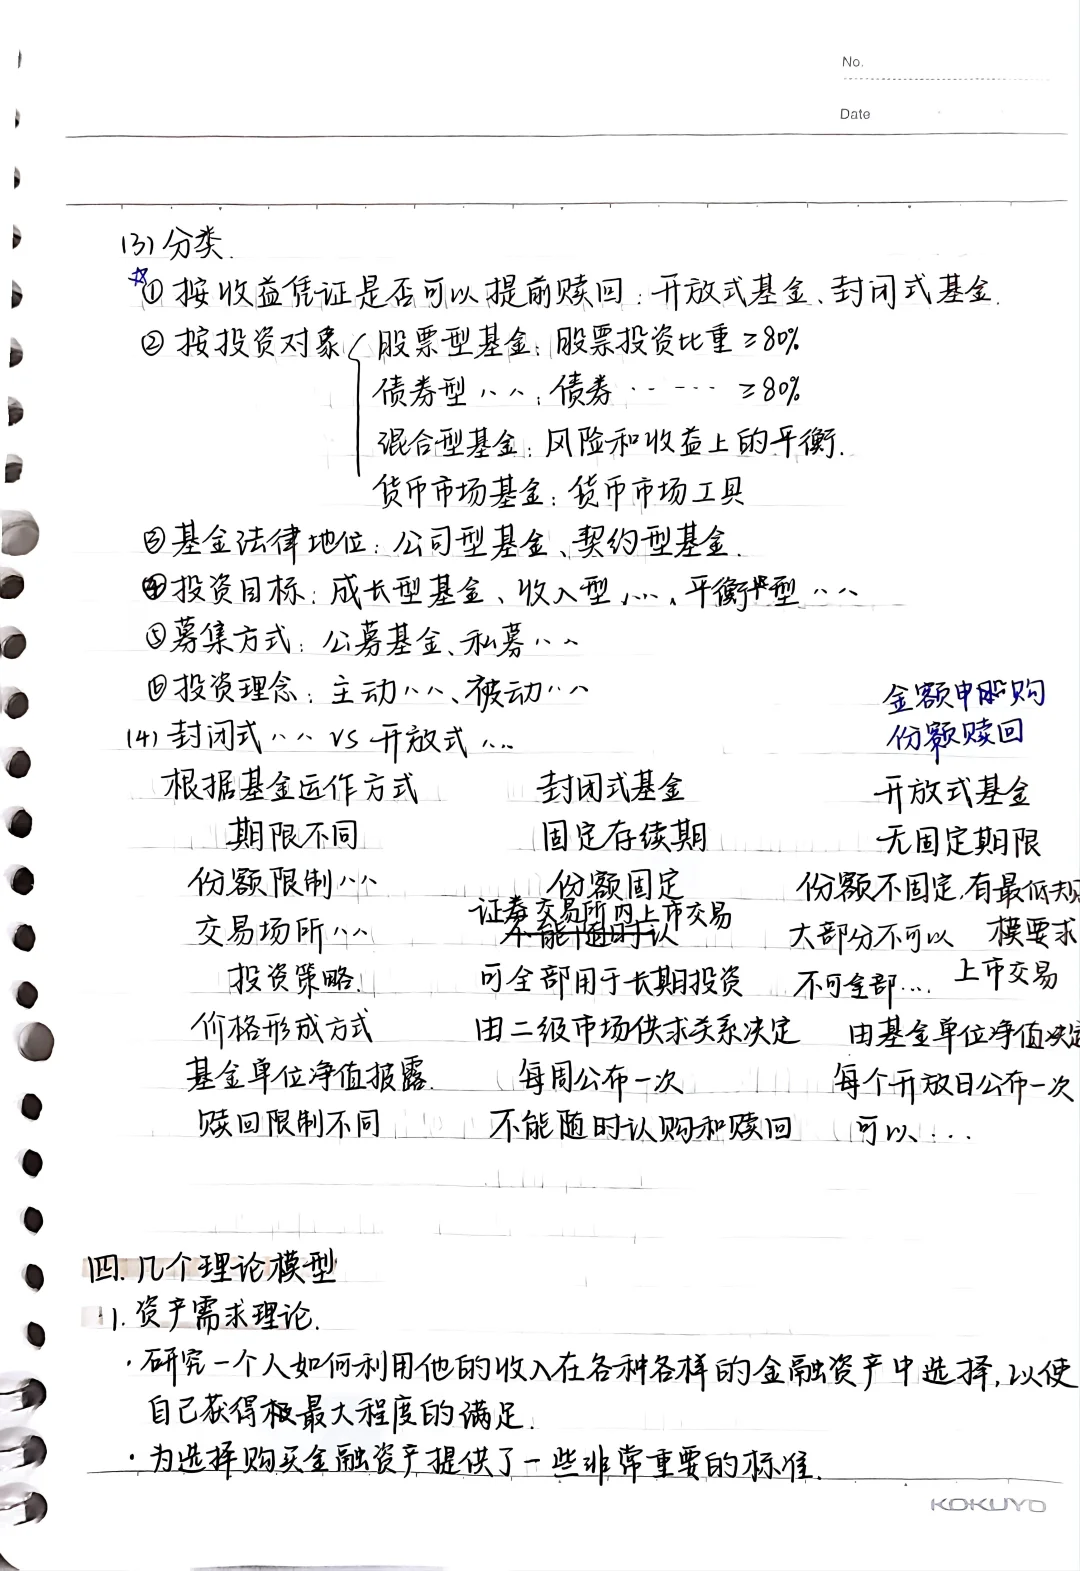 No.
Date
(3) 分类.
☆① 按收益凭证是否可以提前赎回：开放式基金、封闭式基金.
② 按投资对象 股票型基金：股票投资比重 ≥80%
债券型〃〃：债券 …… ≥80%
混合型基金：风险和收益上的平衡.
货币市场基金：货币市场工具
③基金法律地位：公司型基金、契约型基金.
④投资目标：成长型基金、收入型〃〃、平衡型〃〃
⑤募集方式：公募基金、私募〃〃
⑥投资理念：主动〃〃、被动〃〃
金额申购
份额赎回
(4) 封闭式〃〃 VS 开放式〃〃
根据基金运作方式 封闭式基金 开放式基金
期限不同 固定存续期 无固定期限
份额限制〃〃 份额固定 份额不固定,有最低规模要求
交易场所〃〃 证券交易所内上市交易 大部分不可以上市交易
不能随时认
投资策略. 可全部用于长期投资 不可全部….
价格形成方式 由二级市场供求关系决定 由基金单位净值决定
基金单位净值披露. 每周公布一次 每个开放日公布一次
赎回限制不同 不能随时认购和赎回 可以…
四. 几个理论模型
1. 资产需求理论.
·研究一个人如何利用他的收入在各种各样的金融资产中选择,以使
自己获得极最大程度的满足.
·为选择购买金融资产提供了一些非常重要的标准.
KOKUYO